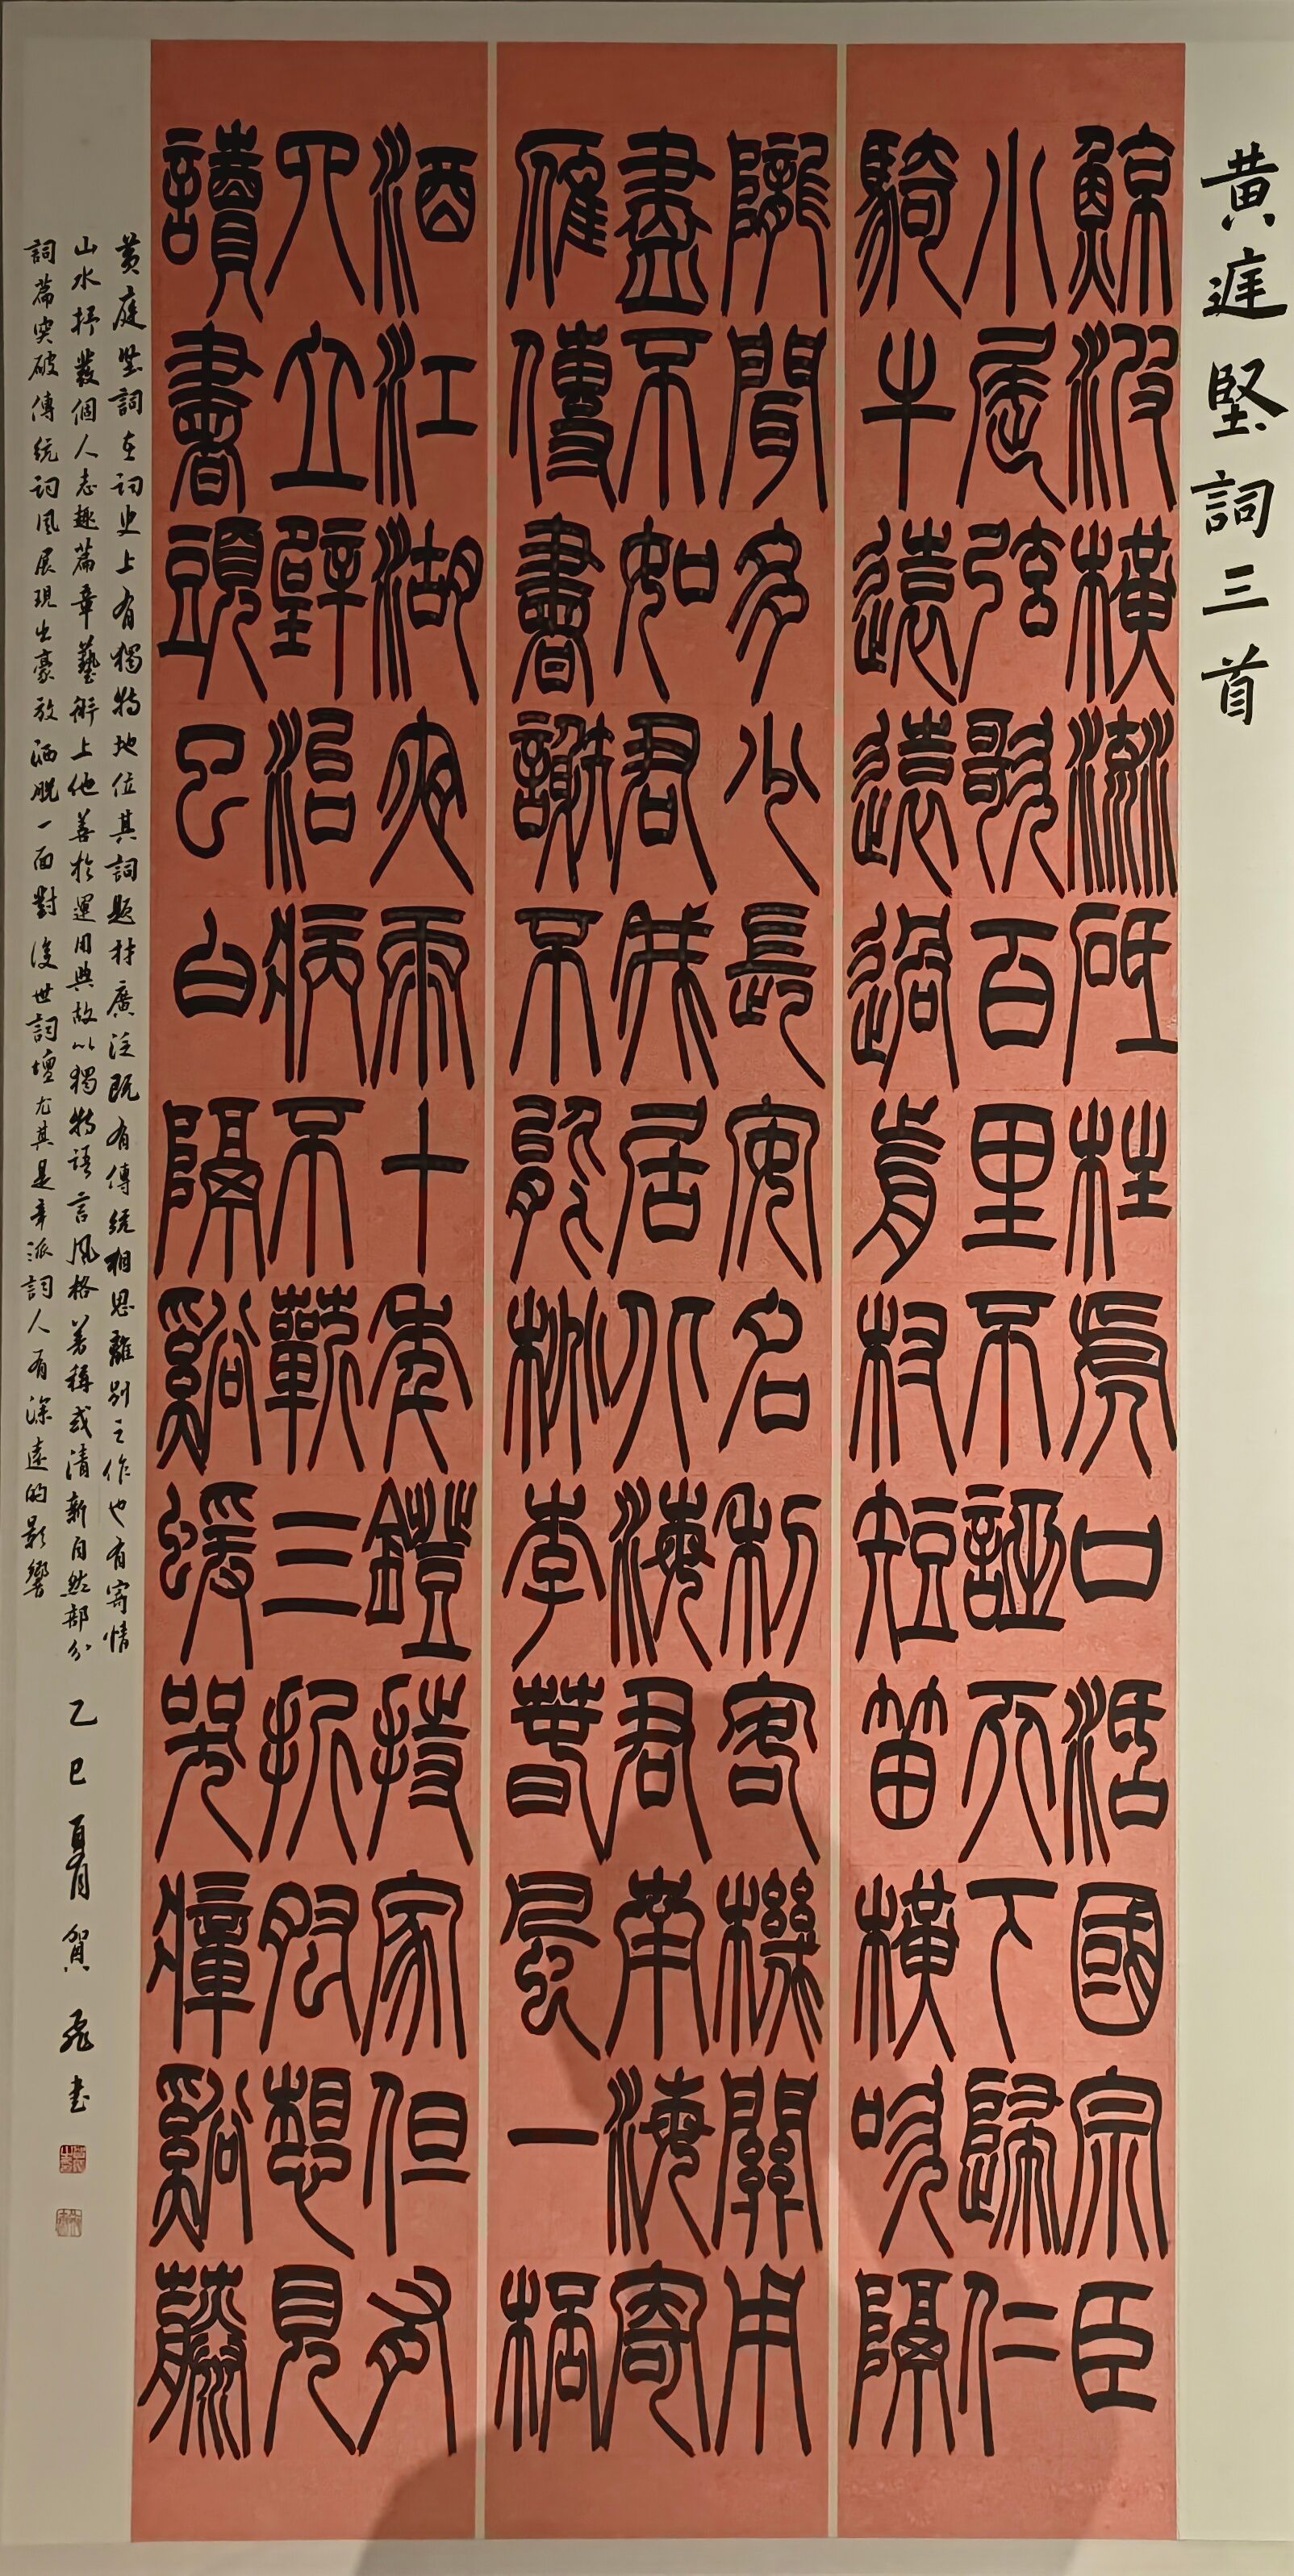 黄庭堅詞三首
鯨波橫流砥柱虎口活國宗臣
小屈弦歌百里不誣天下歸仁
騎牛遠遠過前村短笛橫吹隔
隴聞多少長安名利客機關用
盡不如君我居北海君南海寄
雁傳書謝不能桃李春風一桮
酒江湖夜雨十年鐙持家但有
四立壁治病不蘄三折肱想見
讀書頭已白隔谿猨哭瘴谿藤
黄庭堅詞在詞史上有獨特地位其詞題材廣泛既有傳統相思離別之作也有寄情
山水抒發個人志趣篇章藝術上他善於運用典故以獨特語言風格著稱或清新自然部分
詞篇突破傳統詞風展現出豪放洒脱一面對後世詞壇尤其是辛派詞人有深遠的影響
乙巳夏月賀飛書